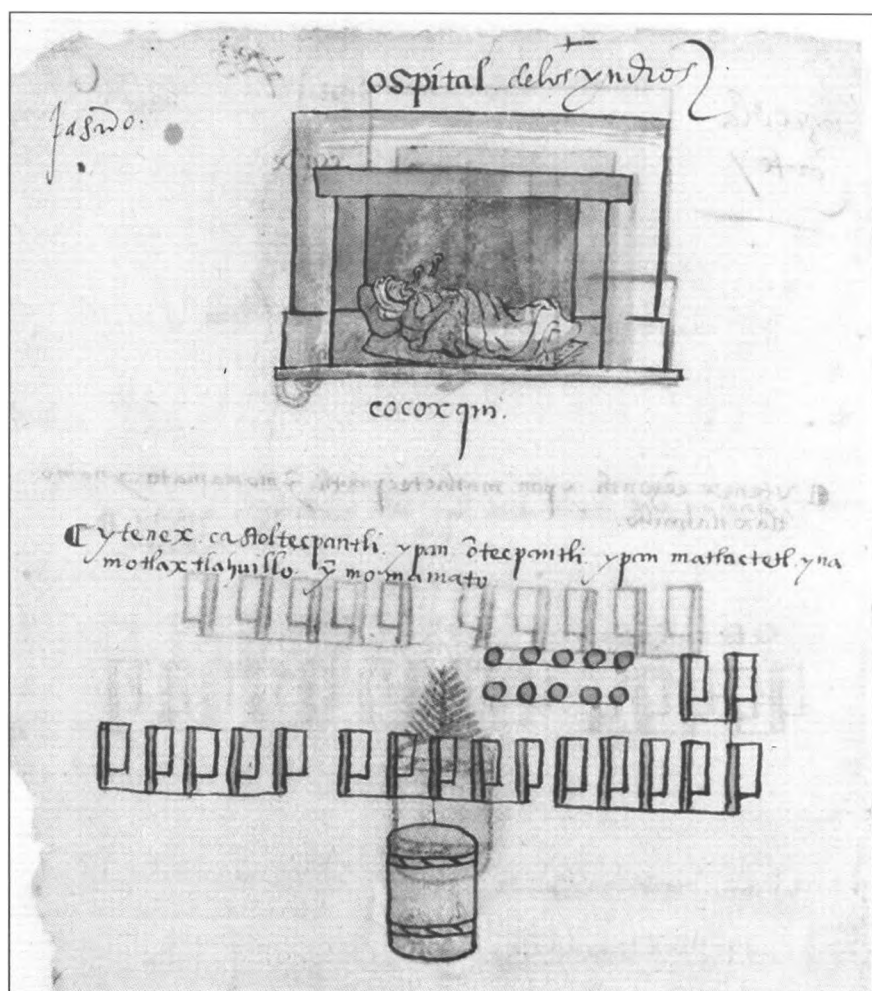 ospital delos yndios
cocoxqui.
ytenex caxtoltecpantli ypan ōtecpantli ypan matlactetl yna
motlaxtlahuillo. ȳ momamato